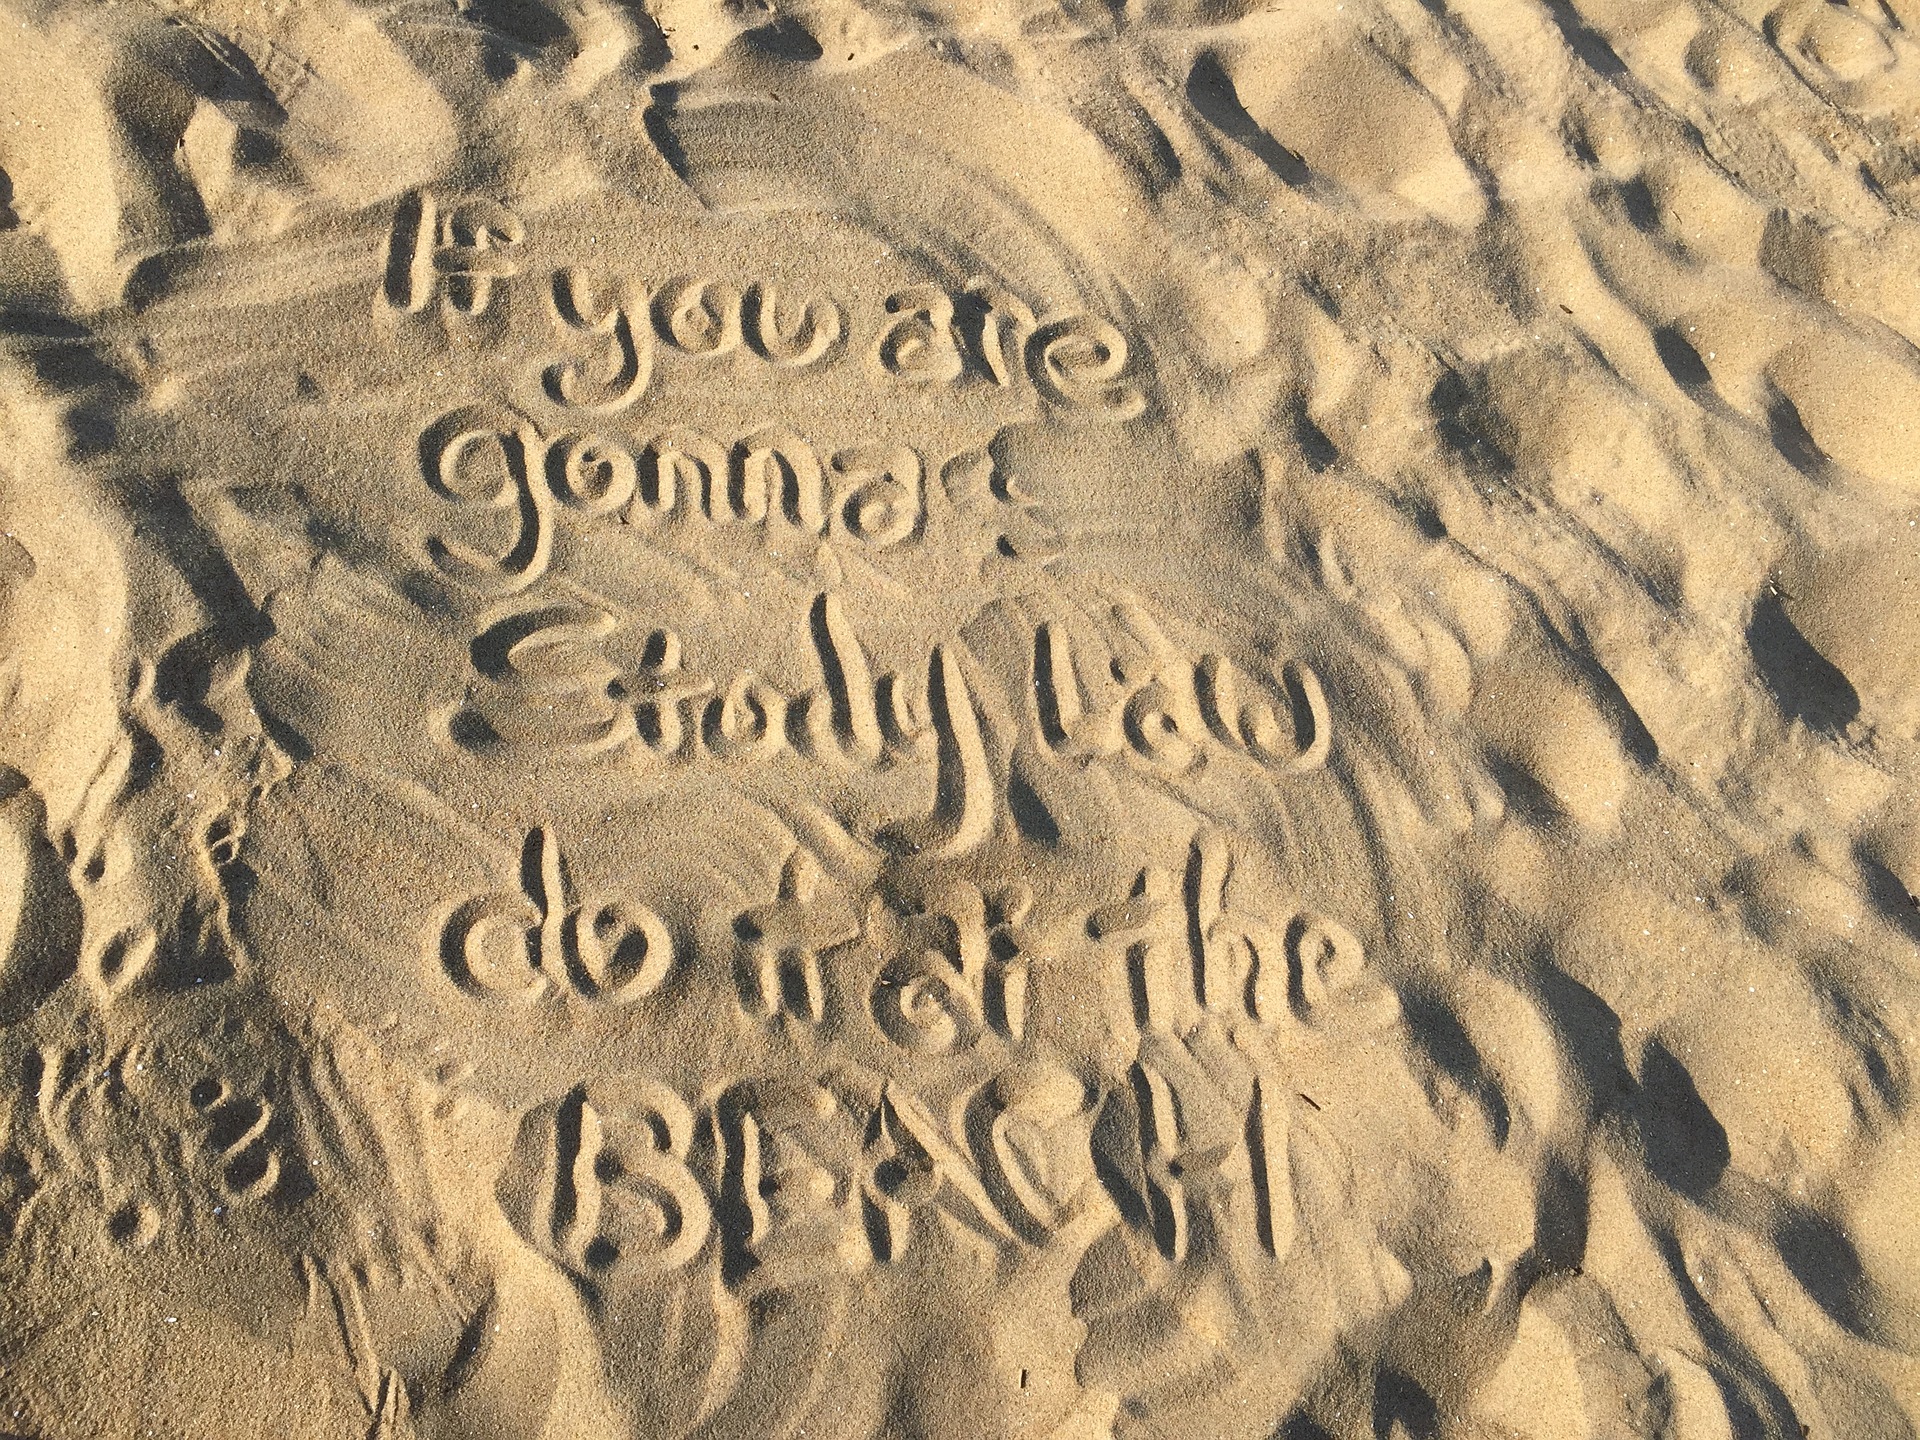 If you are
gonna
Study Law
do it at the
BEACH